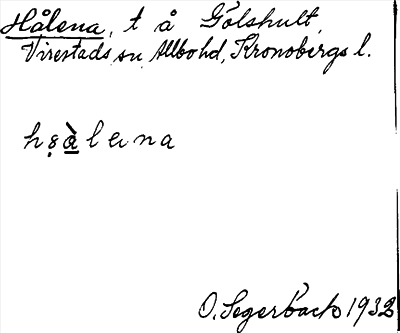 Hålena, t å Gölshult,
Virestads sn, Allbo hd, Kronobergs l.
hs̥å̱̀lena
O. Segerbäck 1932